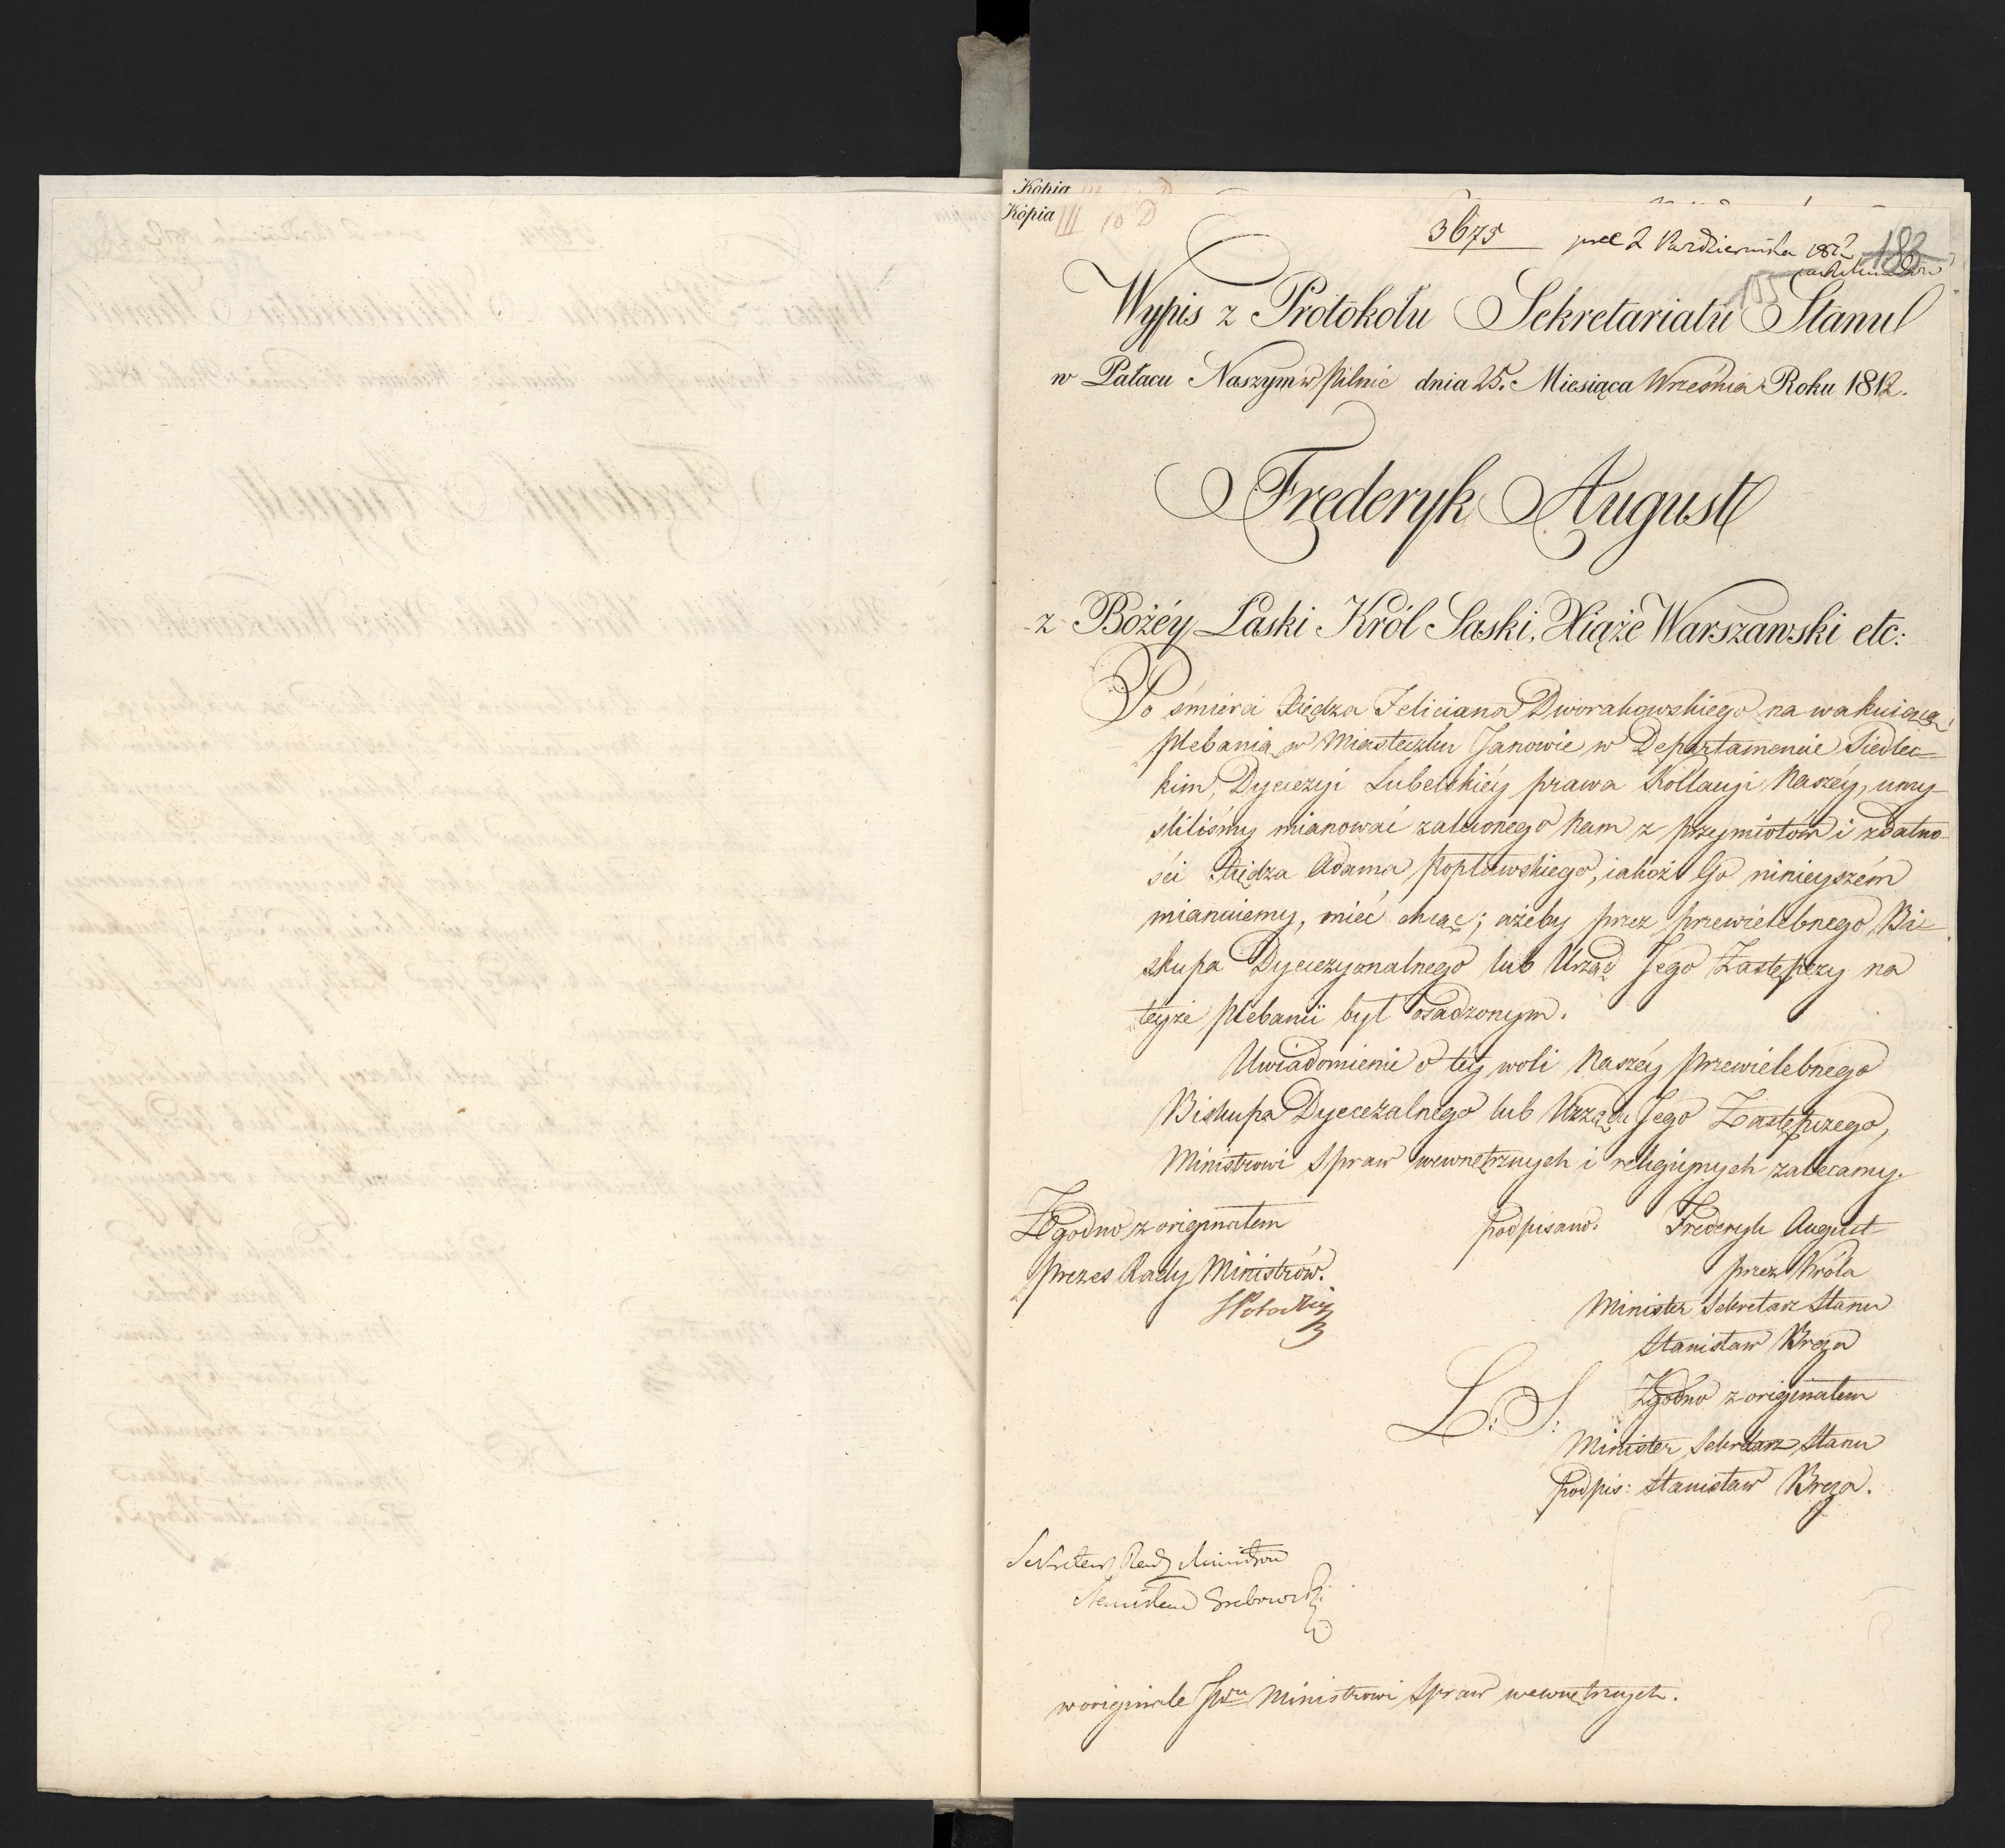 Kopia
Kopia III 10 D
3675 prael 2 Października 1812 183
155
Wypis z Protokołu Sekretariatu Stanu
w Pałacu Naszym w Pilnic dnia 25. Miesiąca Września Roku 1812.
Frederyk August
z Bożéy Łaski Król Saski, Xiąże Warszawski etc:
Po śmierci Xiędza Feliciana Dworakowskiego na wakuiącą
plebanią w Miasteczku Janowie w Departamencie Siedlec-
kim, Dyecezyi Lubelskiéy prawa Kollacyi Naszéy, umy-
śliliśmy mianować zaleconego Nam z przymiotów i zdatno-
ści Xiędza Adama Popławskiego, iakoż Go ninieyszém
mianuiemy, mieć chcąc; ażeby przez przewielebnego Bi-
skupa Dyecezyonalnego lub Urząd Jego Zastępczy na
teyże plebanii był osadzonym.
Uwiadomienie o téy woli Naszéy przewielebnego
Biskupa Dyecezalnego lub Urzędu Jego Zastępczego,
Ministrowi Spraw wewnętrznych i religiynych zalecamy.
Zgodno z originałem podpisano: Frederyk August
Prezes Rady Ministrów. przez Króla
SPotocki Minister Sekretarz Stanu
Stanisław Breza
L: S: Zgodno z originałem
Minister Sekretarz Stanu
podpis: Stanisław Breza.
Sekretarz Rady Ministrów
Stanisław Grabowski
w originale JWu Ministrowi Spraw wewnętrznych.